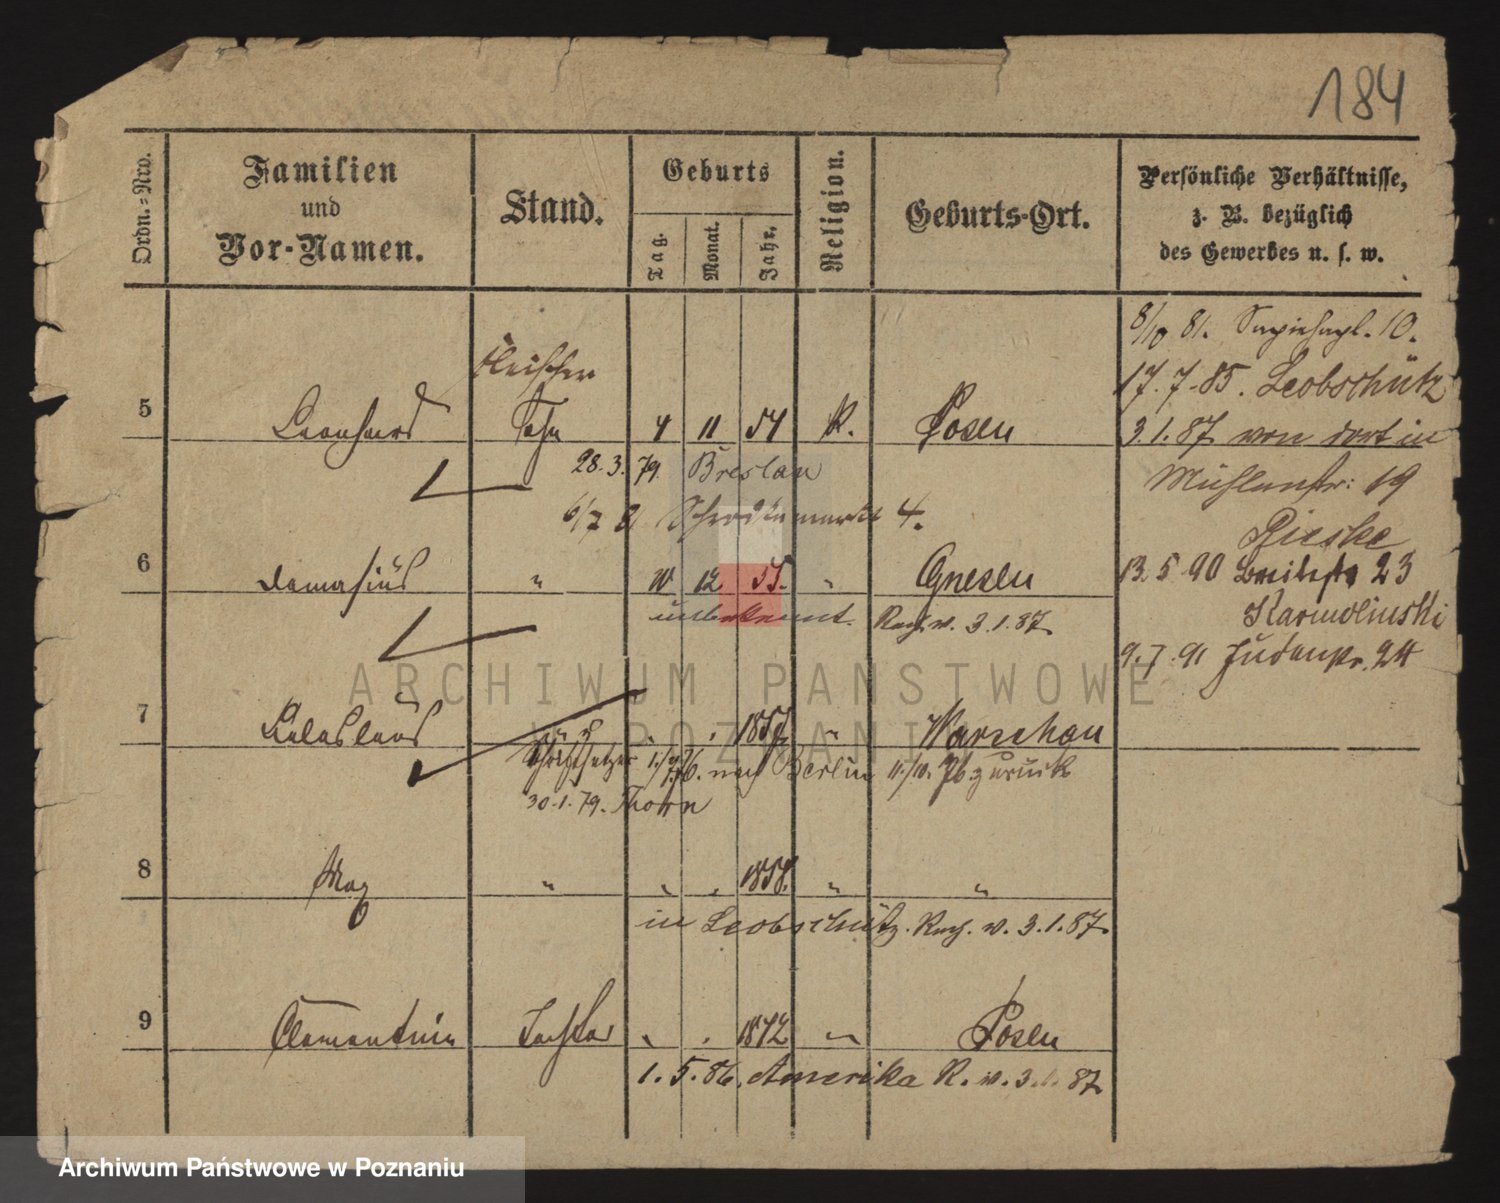 184
Ordn.-Nro.
Familien
und
Vor-Namen.
Stand.
Geburts
Tag.
Monat.
Jahr.
Religion.
Geburts-Ort.
Persönliche Verhältnisse,
z. B. bezüglich
des Gewerbes u. s. w.
8/10 81. Sapiehapl. 10.
Fleischer
17.7.85. Leobschütz
5 Leonhard Sohn 4 11 54 K. Posen
3.1.87 von dort in
28.3.79. Breslau
Mühlenstr: 19
6/7 Schrodkamarkt 4.
Rieske
6 Damasius " 10 12 55. " Gnesen
13.5.90 Breitestr 23
unbekannt. Rech. v. 3.1.87.
Karmolinski
9.7.91 Judenstr. 24
7 Ladislaus " . . 1857. " Warschau
Schriftsetzer 1./7.76. nach Berlin 11./10. 76 zurück
30.1.79. Thorn
8 Max " . . 1858. " "
in Leobschütz. Rech. v. 3.1.87.
9 Clementine Tochter . . 1872 " Posen
1.5.86. Amerika R. v. 3.1.87.
ARCHIWUM PANSTWOWE
W POZNANIU
Archiwum Państwowe w Poznaniu